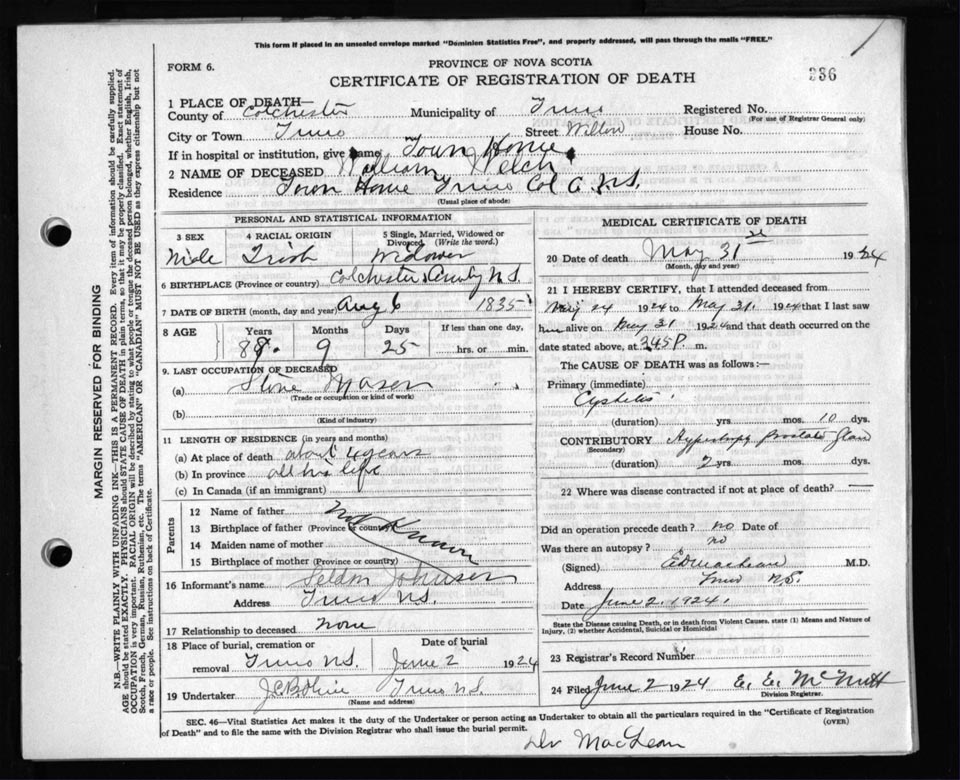 This form if placed in an unsealed envelope marked "Dominion Statistics Free", and properly addressed, will pass through the mails "FREE."
FORM 6.
PROVINCE OF NOVA SCOTIA
CERTIFICATE OF REGISTRATION OF DEATH
336
1 PLACE OF DEATH—
County of Colchester Municipality of Truro Registered No.
(For use of Registrar General only)
City or Town Truro Street Willow House No.
If in hospital or institution, give name Town Home
2 NAME OF DECEASED William Welch
Residence Town Home Truro Col Co N.S.
(Usual place of abode)
PERSONAL AND STATISTICAL INFORMATION
3 SEX 4 RACIAL ORIGIN 5 Single, Married, Widowed or Divorced (Write the word.)
Male Irish Widower
6 BIRTHPLACE (Province or country) Colchester County N.S.
7 DATE OF BIRTH (month, day and year) Aug 6 1835
8 AGE Years Months Days If less than one day,
88 9 25 hrs. or min.
9. LAST OCCUPATION OF DECEASED
(a) Stone Mason
(Trade or occupation or kind of work)
(b)
(Kind of industry)
11 LENGTH OF RESIDENCE (in years and months)
(a) At place of death about 4 years
(b) In province all his life
(c) In Canada (if an immigrant)
Parents
12 Name of father
13 Birthplace of father (Province or country)
14 Maiden name of mother
15 Birthplace of mother (Province or country)
Not Known
16 Informant's name Seldon Johnson
Address Truro N.S.
17 Relationship to deceased None
18 Place of burial, cremation or removal Truro N.S. Date of burial June 2 1924
19 Undertaker Truro N.S.
(Name and address)
MEDICAL CERTIFICATE OF DEATH
20 Date of death May 31st 1924
(Month, day and year)
21 I HEREBY CERTIFY, that I attended deceased from
May 24 1924 to May 31 1924 that I last saw
him alive on May 31 1924 and that death occurred on
date stated above, at 3.45 P. m.
The CAUSE OF DEATH was as follows:—
Primary (immediate)
Cystitis
(duration) yrs. mos. 10 dys.
CONTRIBUTORY Hypertrophy Prostate Gland
(Secondary)
(duration) 2 yrs. mos. dys.
22 Where was disease contracted if not at place of death? —
Did an operation precede death? no Date of
Was there an autopsy? no
(Signed) E D MacLean M.D.
Address Truro N.S.
Date June 2. 1924.
State the Disease causing Death, or in death from Violent Causes, state (1) Means and Nature of
Injury, (2) whether Accidental, Suicidal or Homicidal
23 Registrar's Record Number
24 Filed June 2 1924 E. E. McNutt
Division Registrar.
SEC. 46—Vital Statistics Act makes it the duty of the Undertaker or person acting as Undertaker to obtain all the particulars required in the "Certificate of Registration
of Death" and to file the same with the Division Registrar who shall issue the burial permit.
(OVER)
Dr MacLean
MARGIN RESERVED FOR BINDING
N.B.—WRITE PLAINLY WITH UNFADING INK—THIS IS A PERMANENT RECORD. Every item of information should be carefully supplied.
AGE should be stated EXACTLY. PHYSICIANS should STATE CAUSE OF DEATH in plain terms, so that it may be properly classified. Exact statement of
OCCUPATION is very important. RACIAL ORIGIN will be described by stating to what people or tongue the deceased person belonged, whether English, Irish,
Scotch, French, German, Russian, Ruthenian, etc. The terms "AMERICAN" or "CANADIAN" MUST NOT BE USED as they express citizenship but not
a race or people. See instructions on back of Certificate.